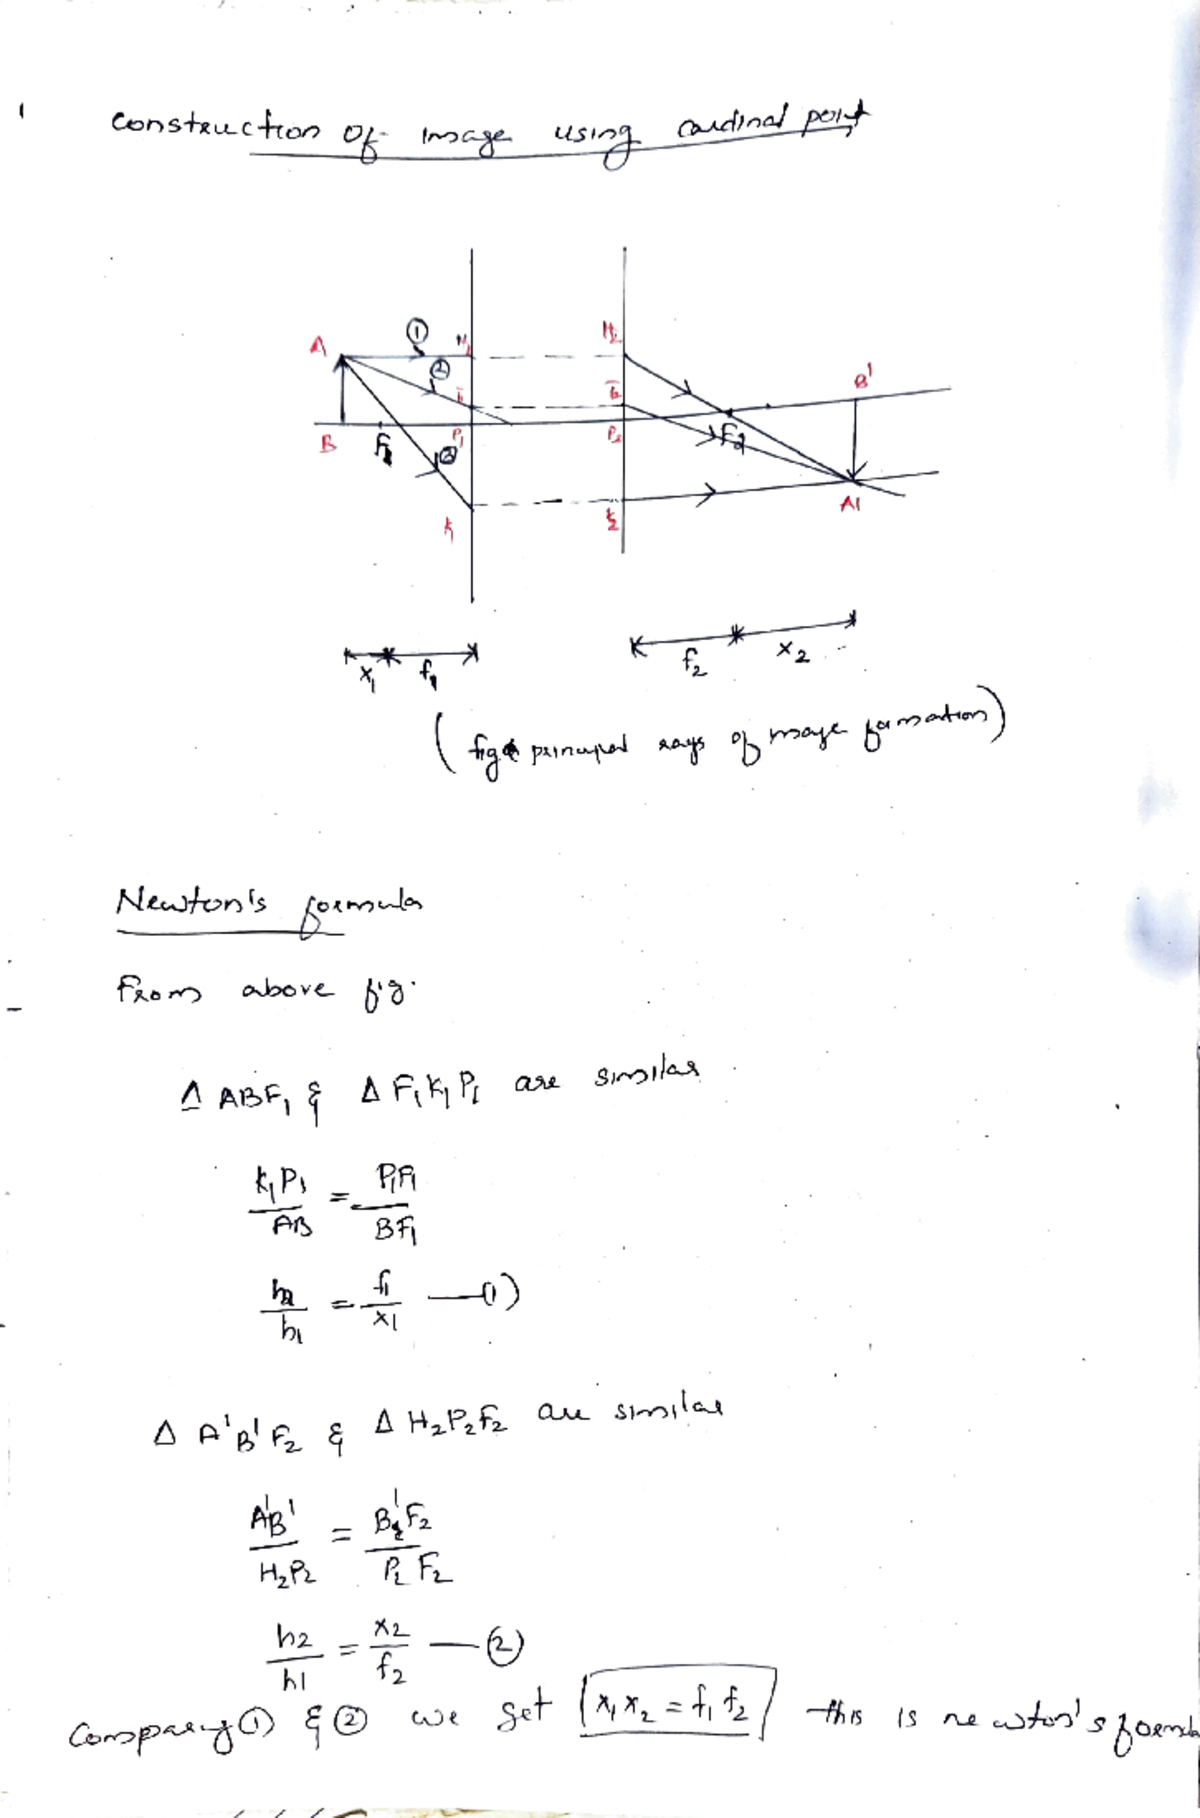 Construction of image using cardinal point
A ① H1 H2
② B'
B F1 P1 P2 F2
③
K1 K2 A1
x1 f1 f2 x2
(fig principal rays of image formation)
Newton's formula
From above fig.
Δ ABF1 & Δ F1K1P1 are similar
K1P1/AB = P1F1/BF1
h2/h1 = f1/x1 —(1)
Δ A'B'F2 & Δ H2P2F2 are similar
A'B'/H2P2 = B'F2/P2F2
h2/h1 = x2/f2 —②
Comparing ① & ② we get x1 x2 = f1 f2 this is newton's formula